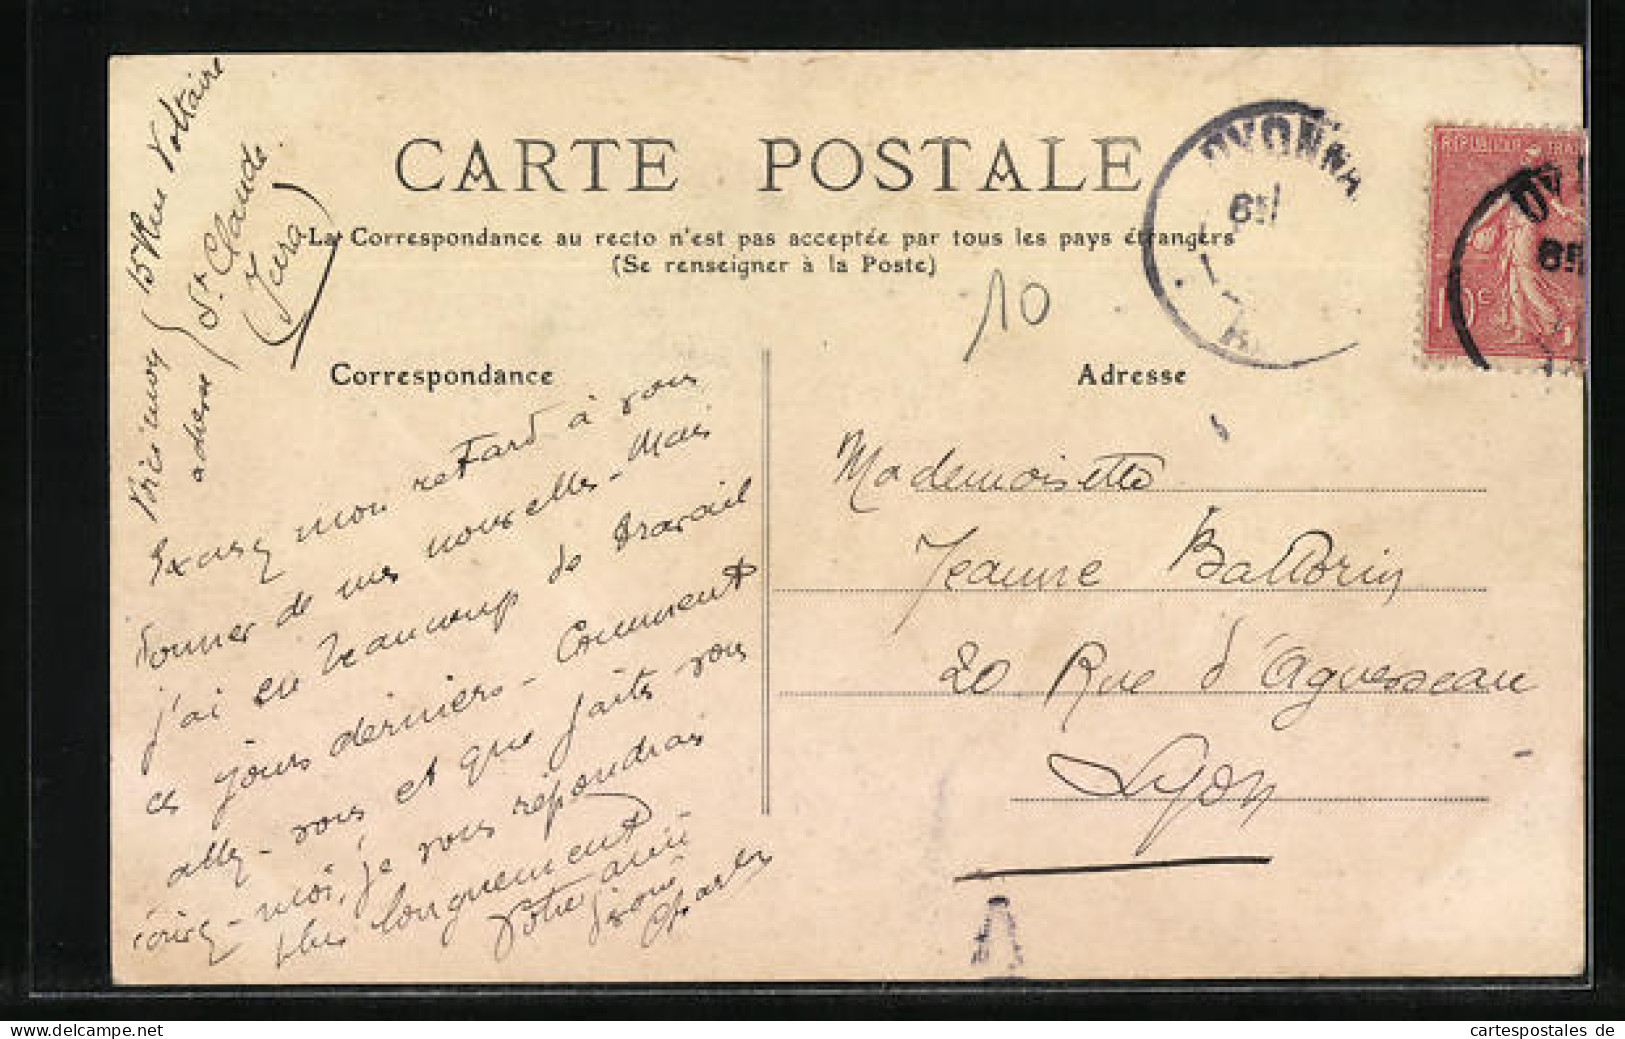 CARTE POSTALE
La Correspondance au recto n'est pas acceptée par tous les pays étrangers
(Se renseigner à la Poste)
10
Correspondance
Adresse
15 Rue Voltaire
Voici mon adresse
St Claude
(Jura)
Excusez mon retard à vous
donner de mes nouvelles - Mais
j'ai eu beaucoup de travail
ces jours derniers - Comment
allez-vous et que faites vous
écrivez-moi, je vous répondrai
plus longuement
Votre ami
Charles
Mademoiselle
Jeanne
20 Rue d'Aguesseau
Lyon
OYONNA
REPUBLIQUE FRA
10c
OY
A
cartespostales de